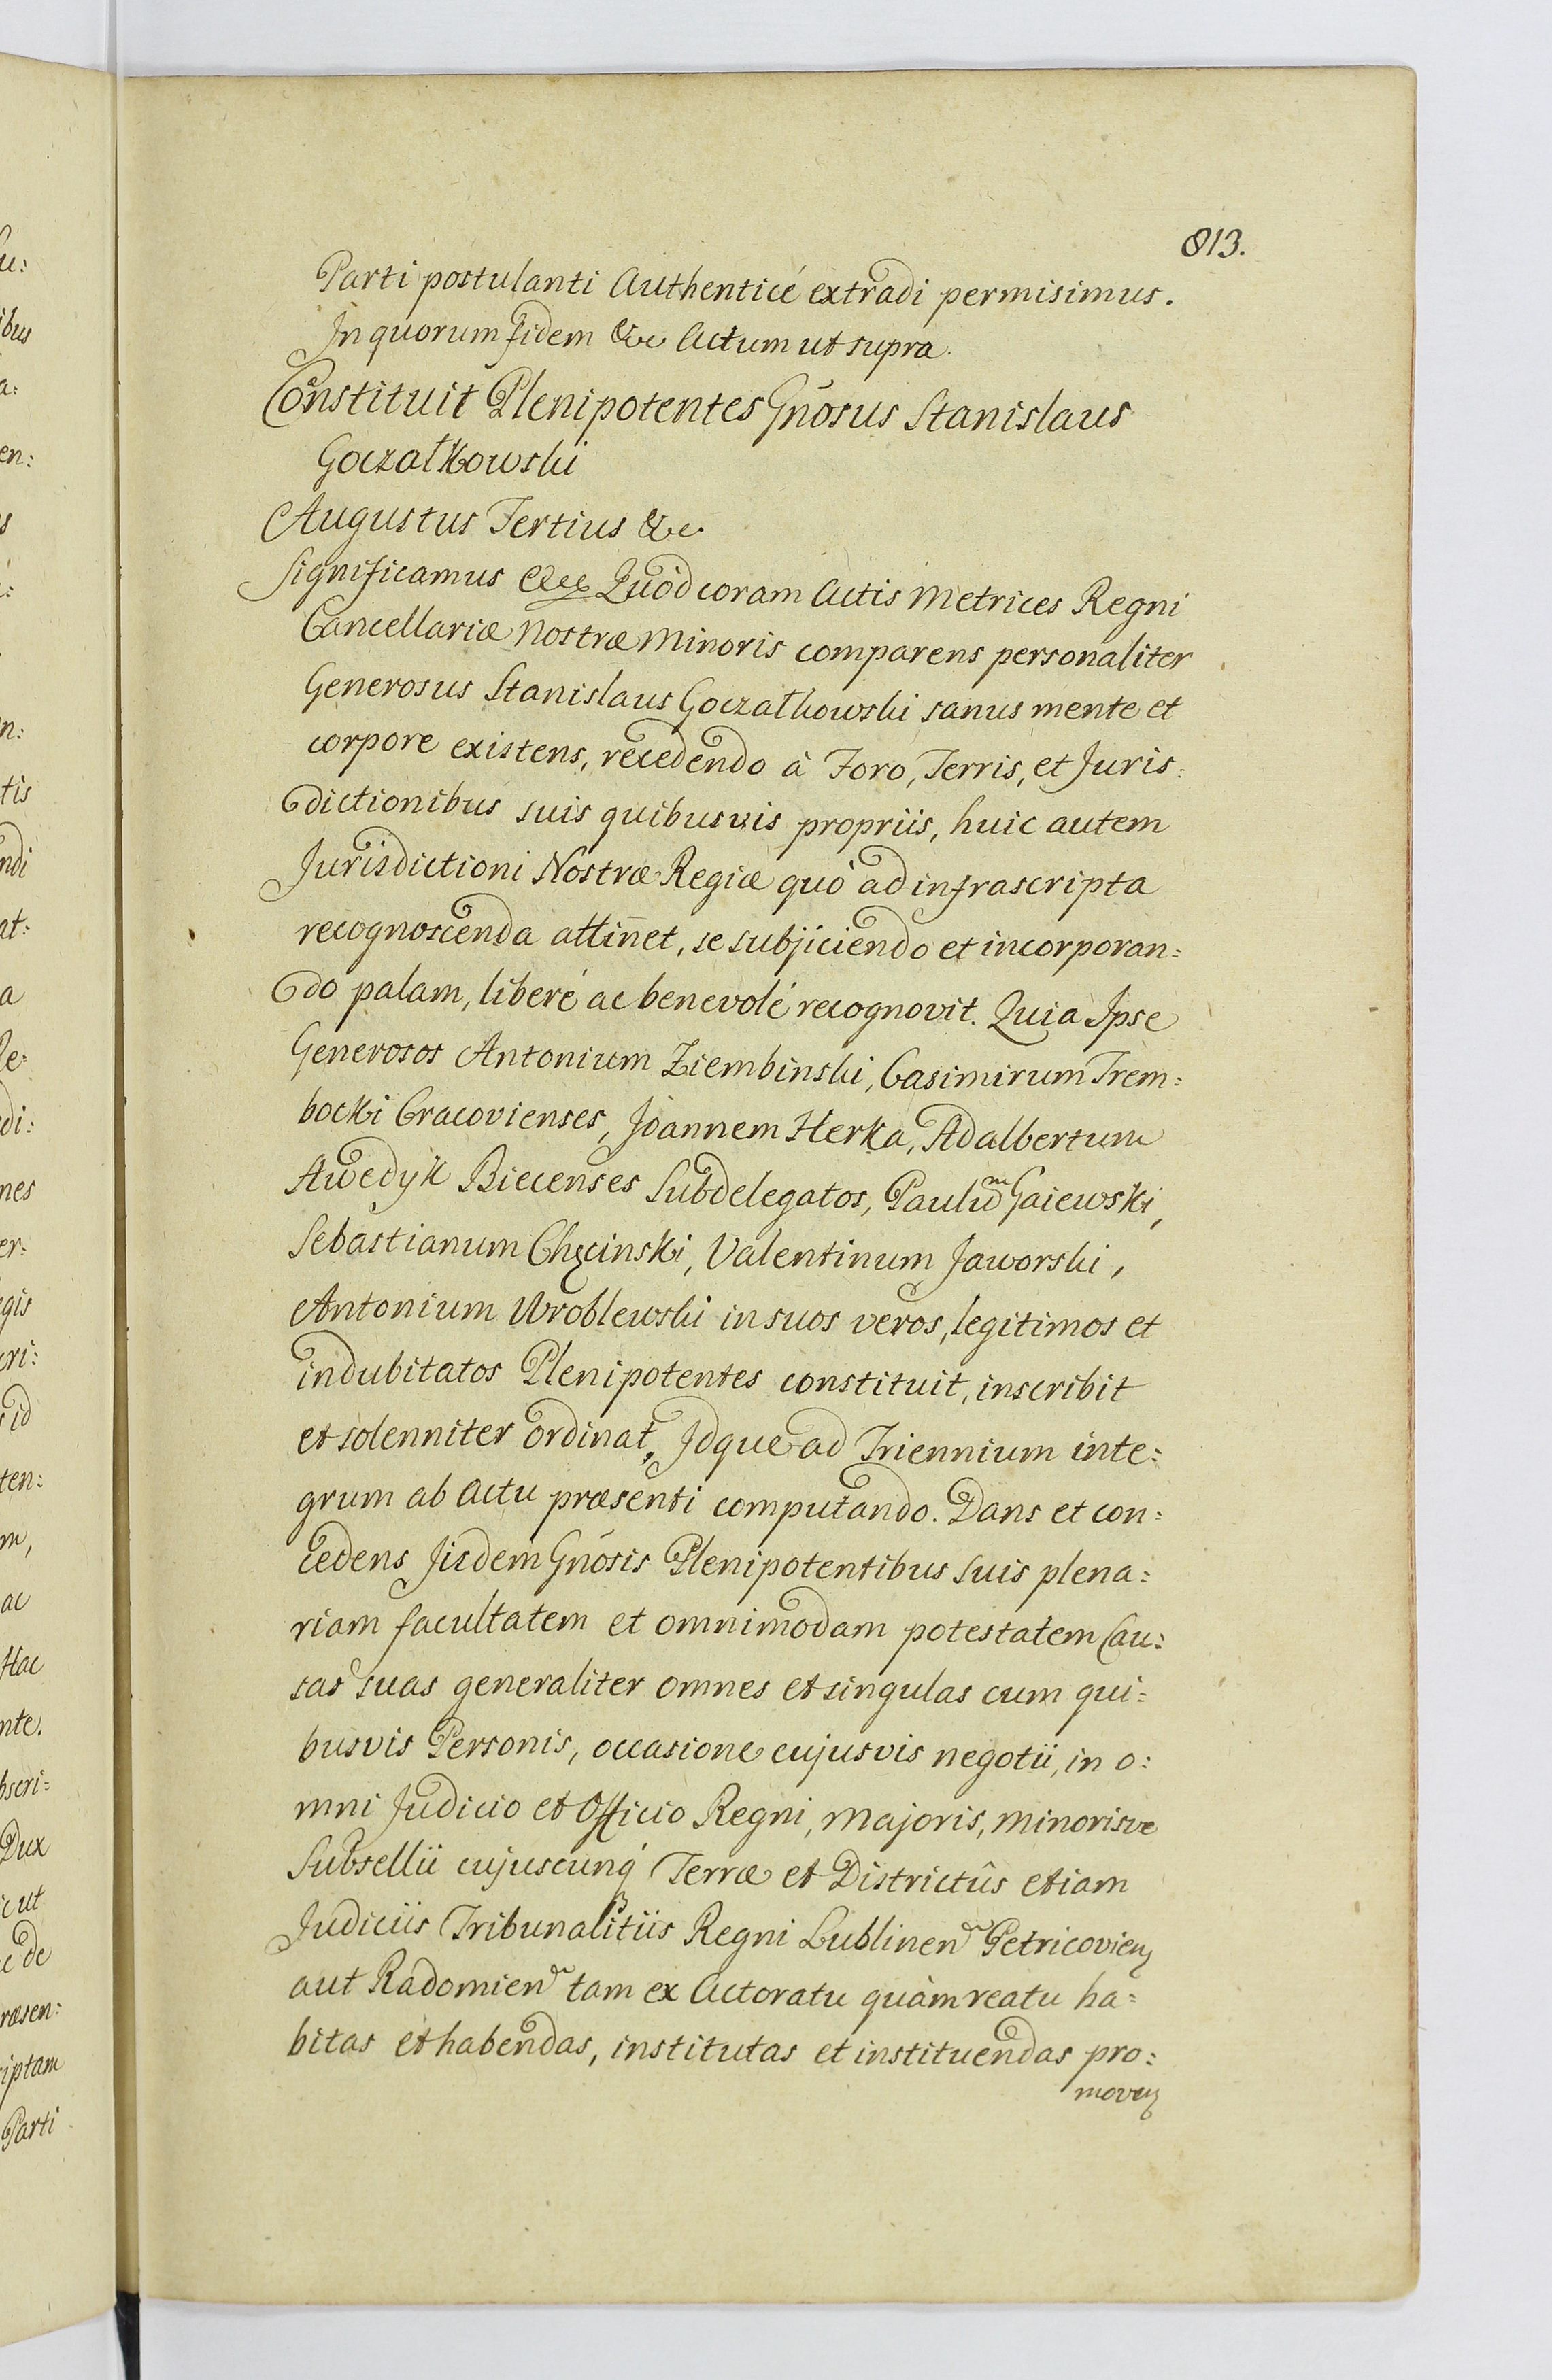 813.
Parti postulanti Authenticé extradi permisimus.
In quorum fidem &c Actum ut supra.
Constituit Plenipotentes Gnosus Stanislaus
Goczałkowski
Augustus Tertius &c
Significamus &c Quòd coram Actis Metrices Regni
Cancellariæ Nostræ Minoris comparens personaliter
Generosus Stanislaus Goczałkowski sanus mente et
corpore existens, recedendo à Foro, Terris, et Juris:
dictionibus suis quibusvis propriis, huic autem
Jurisdictioni Nostræ Regiæ quò ad infrascripta
recognoscenda attin̄et, se subjiciendo et incorporan:
do palam, liberé ac benevolé recognovit. Quia Ipse
Generosos Antonium Ziembinski, Casimirum Trem:
bocki Cracovienses, Joannem Herka, Adalbertum
Awedyk Biecenses Subdelegatos, Paulum Gaiewski,
Sebastianum Chęcinski, Valentinum Jaworski,
Antonium Wroblewski in suos veros, legitimos et
indubitatos Plenipotentes constituit, inscribit
et solenniter ordinat, Idque ad Triennium inte:
grum ab actu præsenti computando. Dans et con:
cedens Iisdem Gnosis Plenipotentibus suis plena:
riam facultatem et omnimodam potestatem Cau:
sas suas generaliter omnes et singulas cum qui:
busvis Personis, occasione cujusvis negotii, in o:
mni Judicio et Officio Regni, Majoris, minorisve
Subsellii cujuscunq́ Terræ et Districtûs etiam
Judiciis Tribunalitiis Regni Lublinen Petricovien
aut Radomien tam ex Actoratu quàm reatu ha:
bitas et habendas, institutas et instituendas pro:
moven